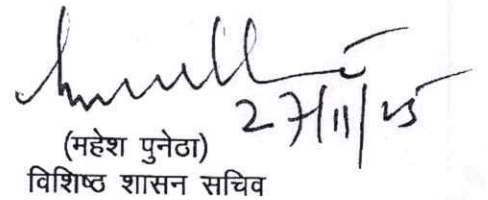 27/11/25
(महेश पुनेठा)
विशिष्ठ शासन सचिव